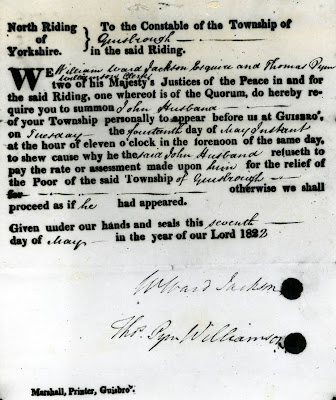 North Riding
of
Yorkshire.
To the Constable of the Township of
Guisbrough
in the said Riding.
WE William Ward Jackson Esquire and Thomas Pym
Williamson Clerk
two of his Majesty's Justices of the Peace in and for
the said Riding, one whereof is of the Quorum, do hereby re-
quire you to summon John Husband
of your Township personally to appear before us at GUISBRO'.
on Tuesday the fourteenth day of May Instant
at the hour of eleven o'clock in the forenoon of the same day,
to shew cause why he the said John Husband refuseth to
pay the rate or assessment made upon him for the relief of
the Poor of the said Township of Guisbrough
otherwise we shall
proceed as if he had appeared.
Given under our hands and seals this seventh
day of May in the year of our Lord 1822
W Ward Jackson
Thos. Pym Williamson
Marshall, Printer, Guisbro'.